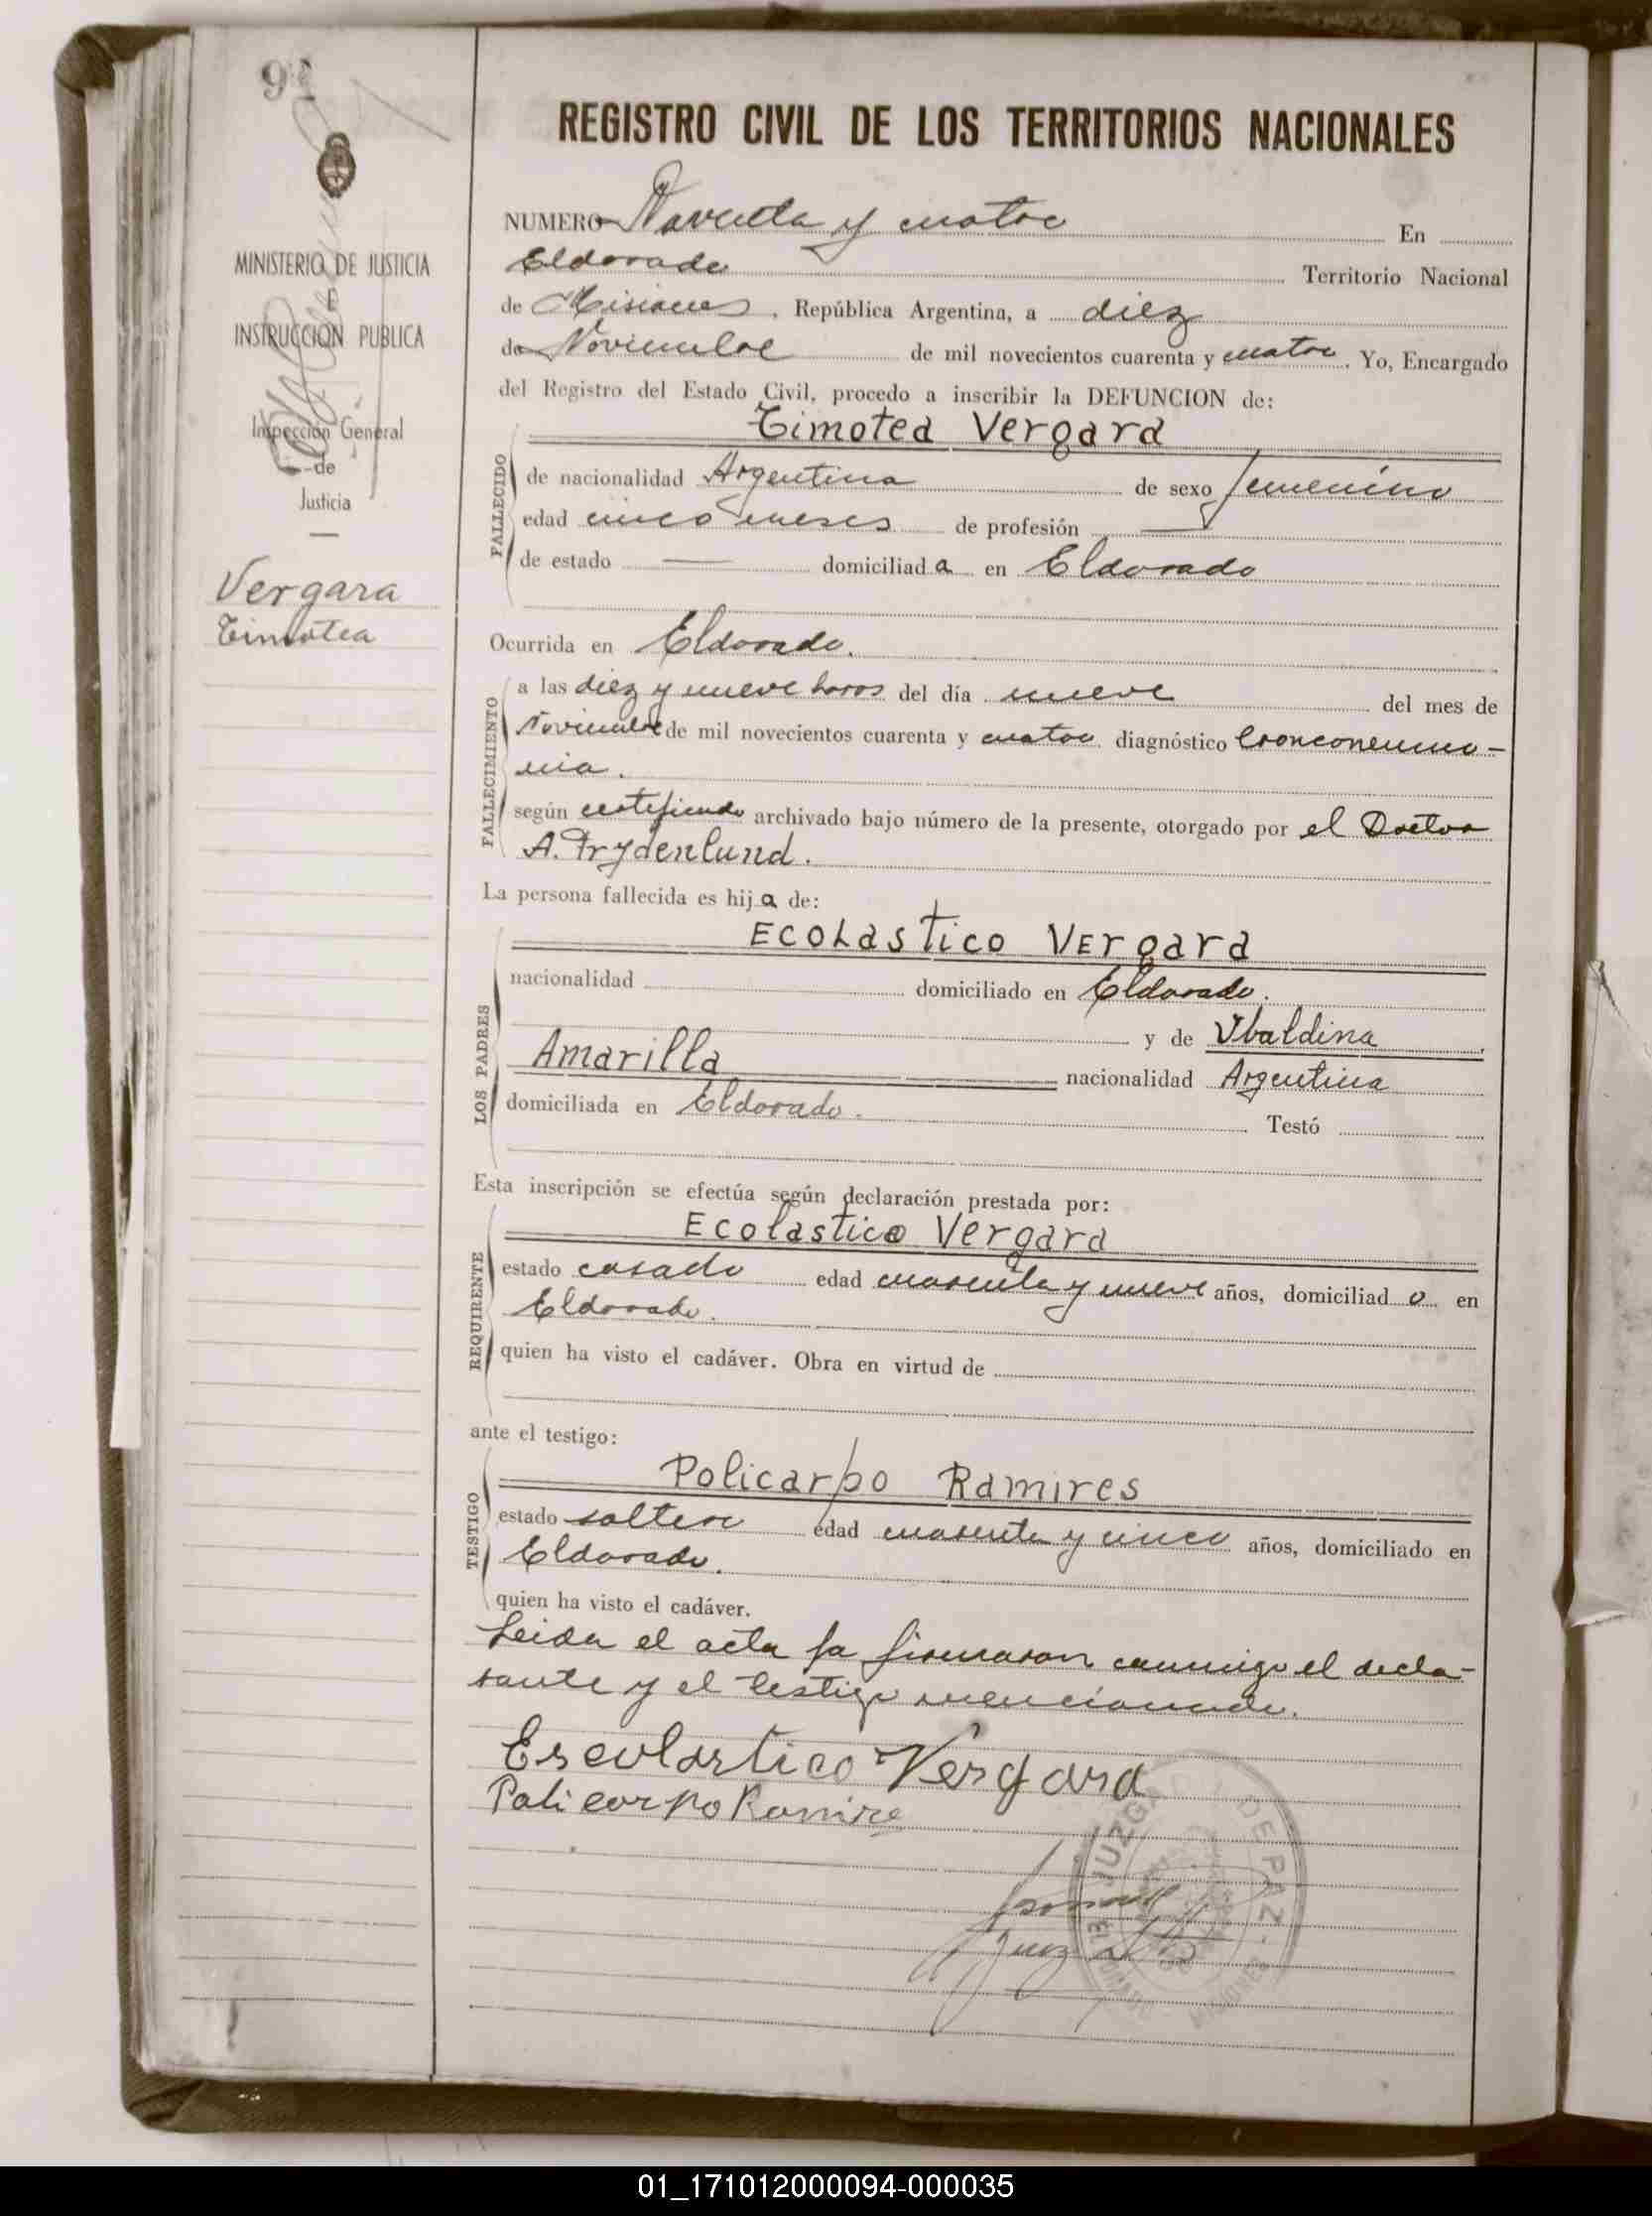 94
MINISTERIO DE JUSTICIA
E
INSTRUCCION PUBLICA
Inspección General
de
Justicia
Vergara
Timotea
REGISTRO CIVIL DE LOS TERRITORIOS NACIONALES
NUMERO Noventa y cuatro En
Eldorado Territorio Nacional
de Misiones, República Argentina, a diez
de Noviembre de mil novecientos cuarenta y cuatro. Yo, Encargado
del Registro del Estado Civil, procedo a inscribir la DEFUNCION de:
Timotea Vergara
FALLECIDO
de nacionalidad Argentina de sexo femenino
edad cinco meses de profesión —
de estado — domiciliada en Eldorado
Ocurrida en Eldorado.
FALLECIMIENTO
a las diez y nueve horas del día nueve del mes de
Noviembre de mil novecientos cuarenta y cuatro diagnóstico bronconeumo-
nia.
según certificado archivado bajo número de la presente, otorgado por el Doctor
A. Frydenlund.
La persona fallecida es hija de:
LOS PADRES
Ecolastico Vergara
nacionalidad domiciliado en Eldorado.
y de Ubaldina
Amarilla nacionalidad Argentina
domiciliada en Eldorado. Testó
Esta inscripción se efectúa según declaración prestada por:
REQUIRENTE
Ecolastico Vergara
estado casado edad cuarenta y nueve años, domiciliado en
Eldorado.
quien ha visto el cadáver. Obra en virtud de
ante el testigo:
TESTIGO
Policarpo Ramires
estado soltero edad cuarenta y cinco años, domiciliado en
Eldorado.
quien ha visto el cadáver.
Leida el acta la firmaron conmigo el decla-
rante y el testigo mencionado.
Escolastico Vergara
Policarpo Ramire
JUZGADO DE PAZ
Juez
01_171012000094-000035